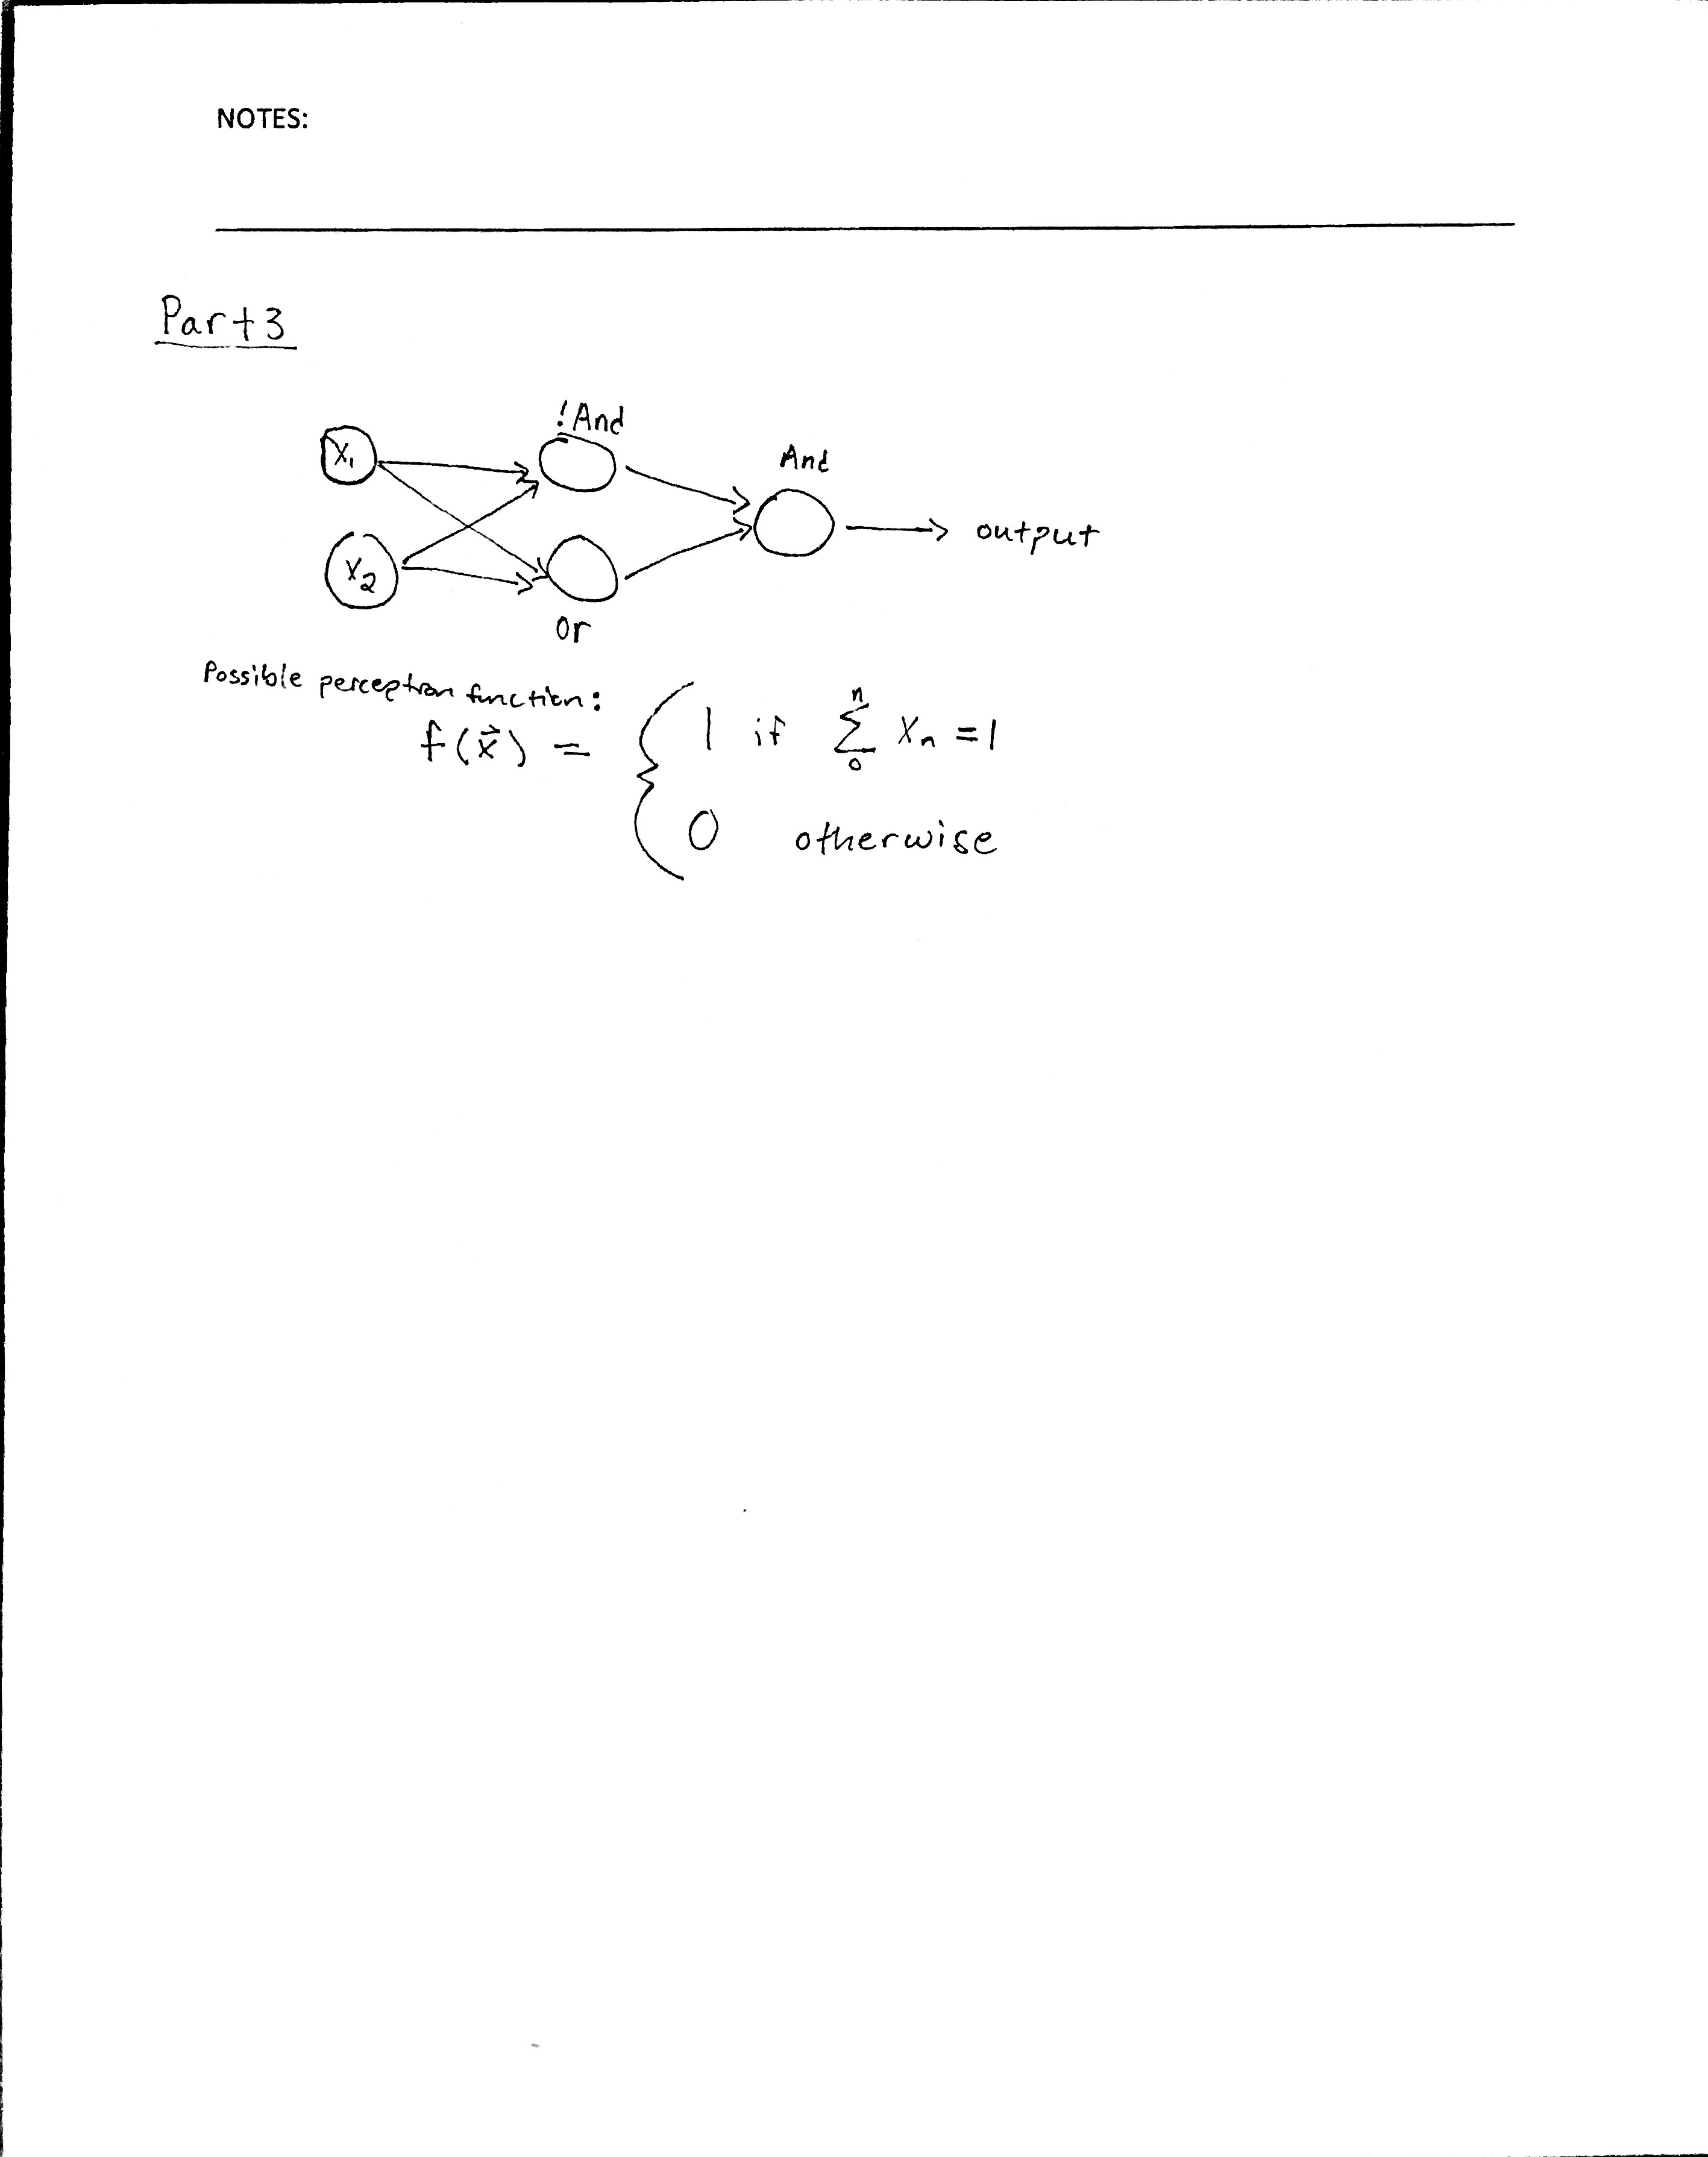 NOTES:
Part 3
!And
And
X₁
output
X₂
or
Possible perceptron function:
f(x⃗) = { 1 if Σ₀ⁿ Xₙ = 1
0 otherwise